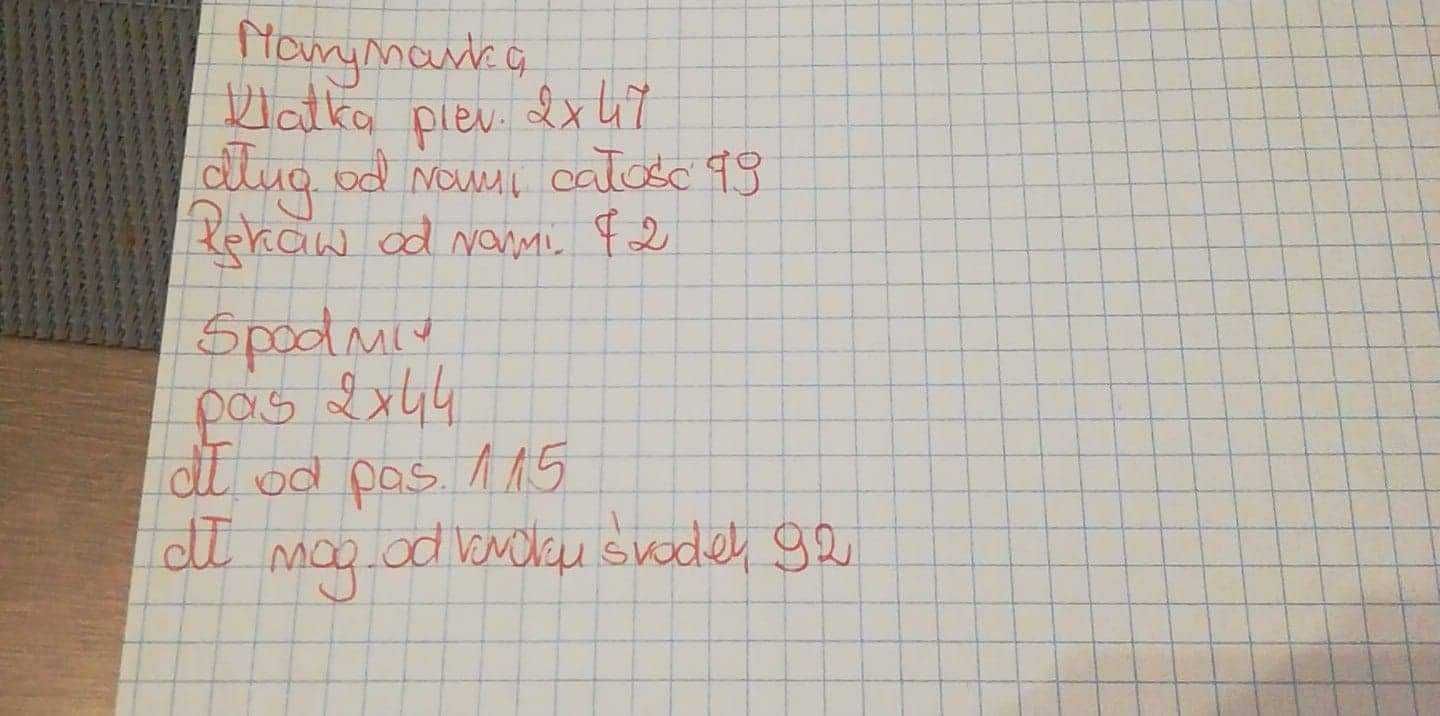 Marynarka
Klatka pier. 2x47
dług. od rami całość 79
Rękaw od rami. 72
Spodnie
pas 2x44
dł. od pas. 115
dł nog. od kroku środek 92